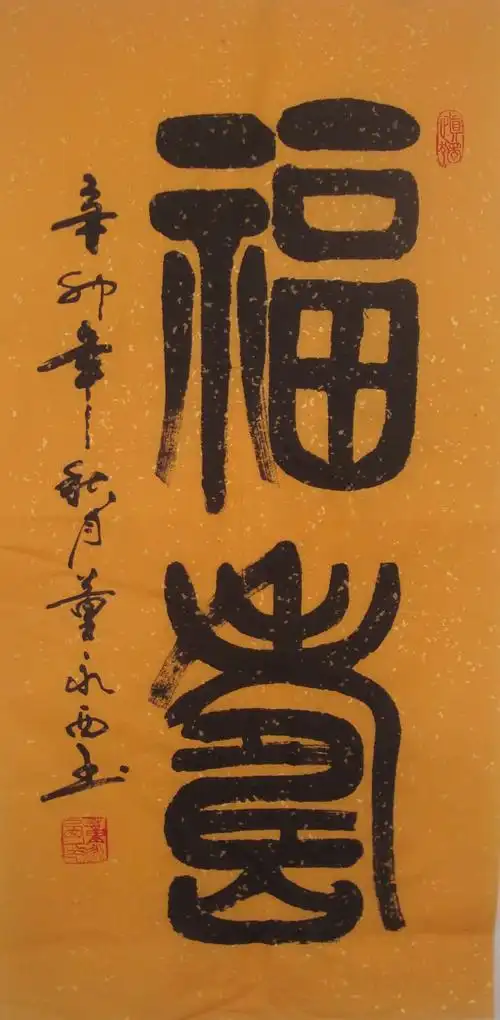 福寿
辛卯年秋月董永西书